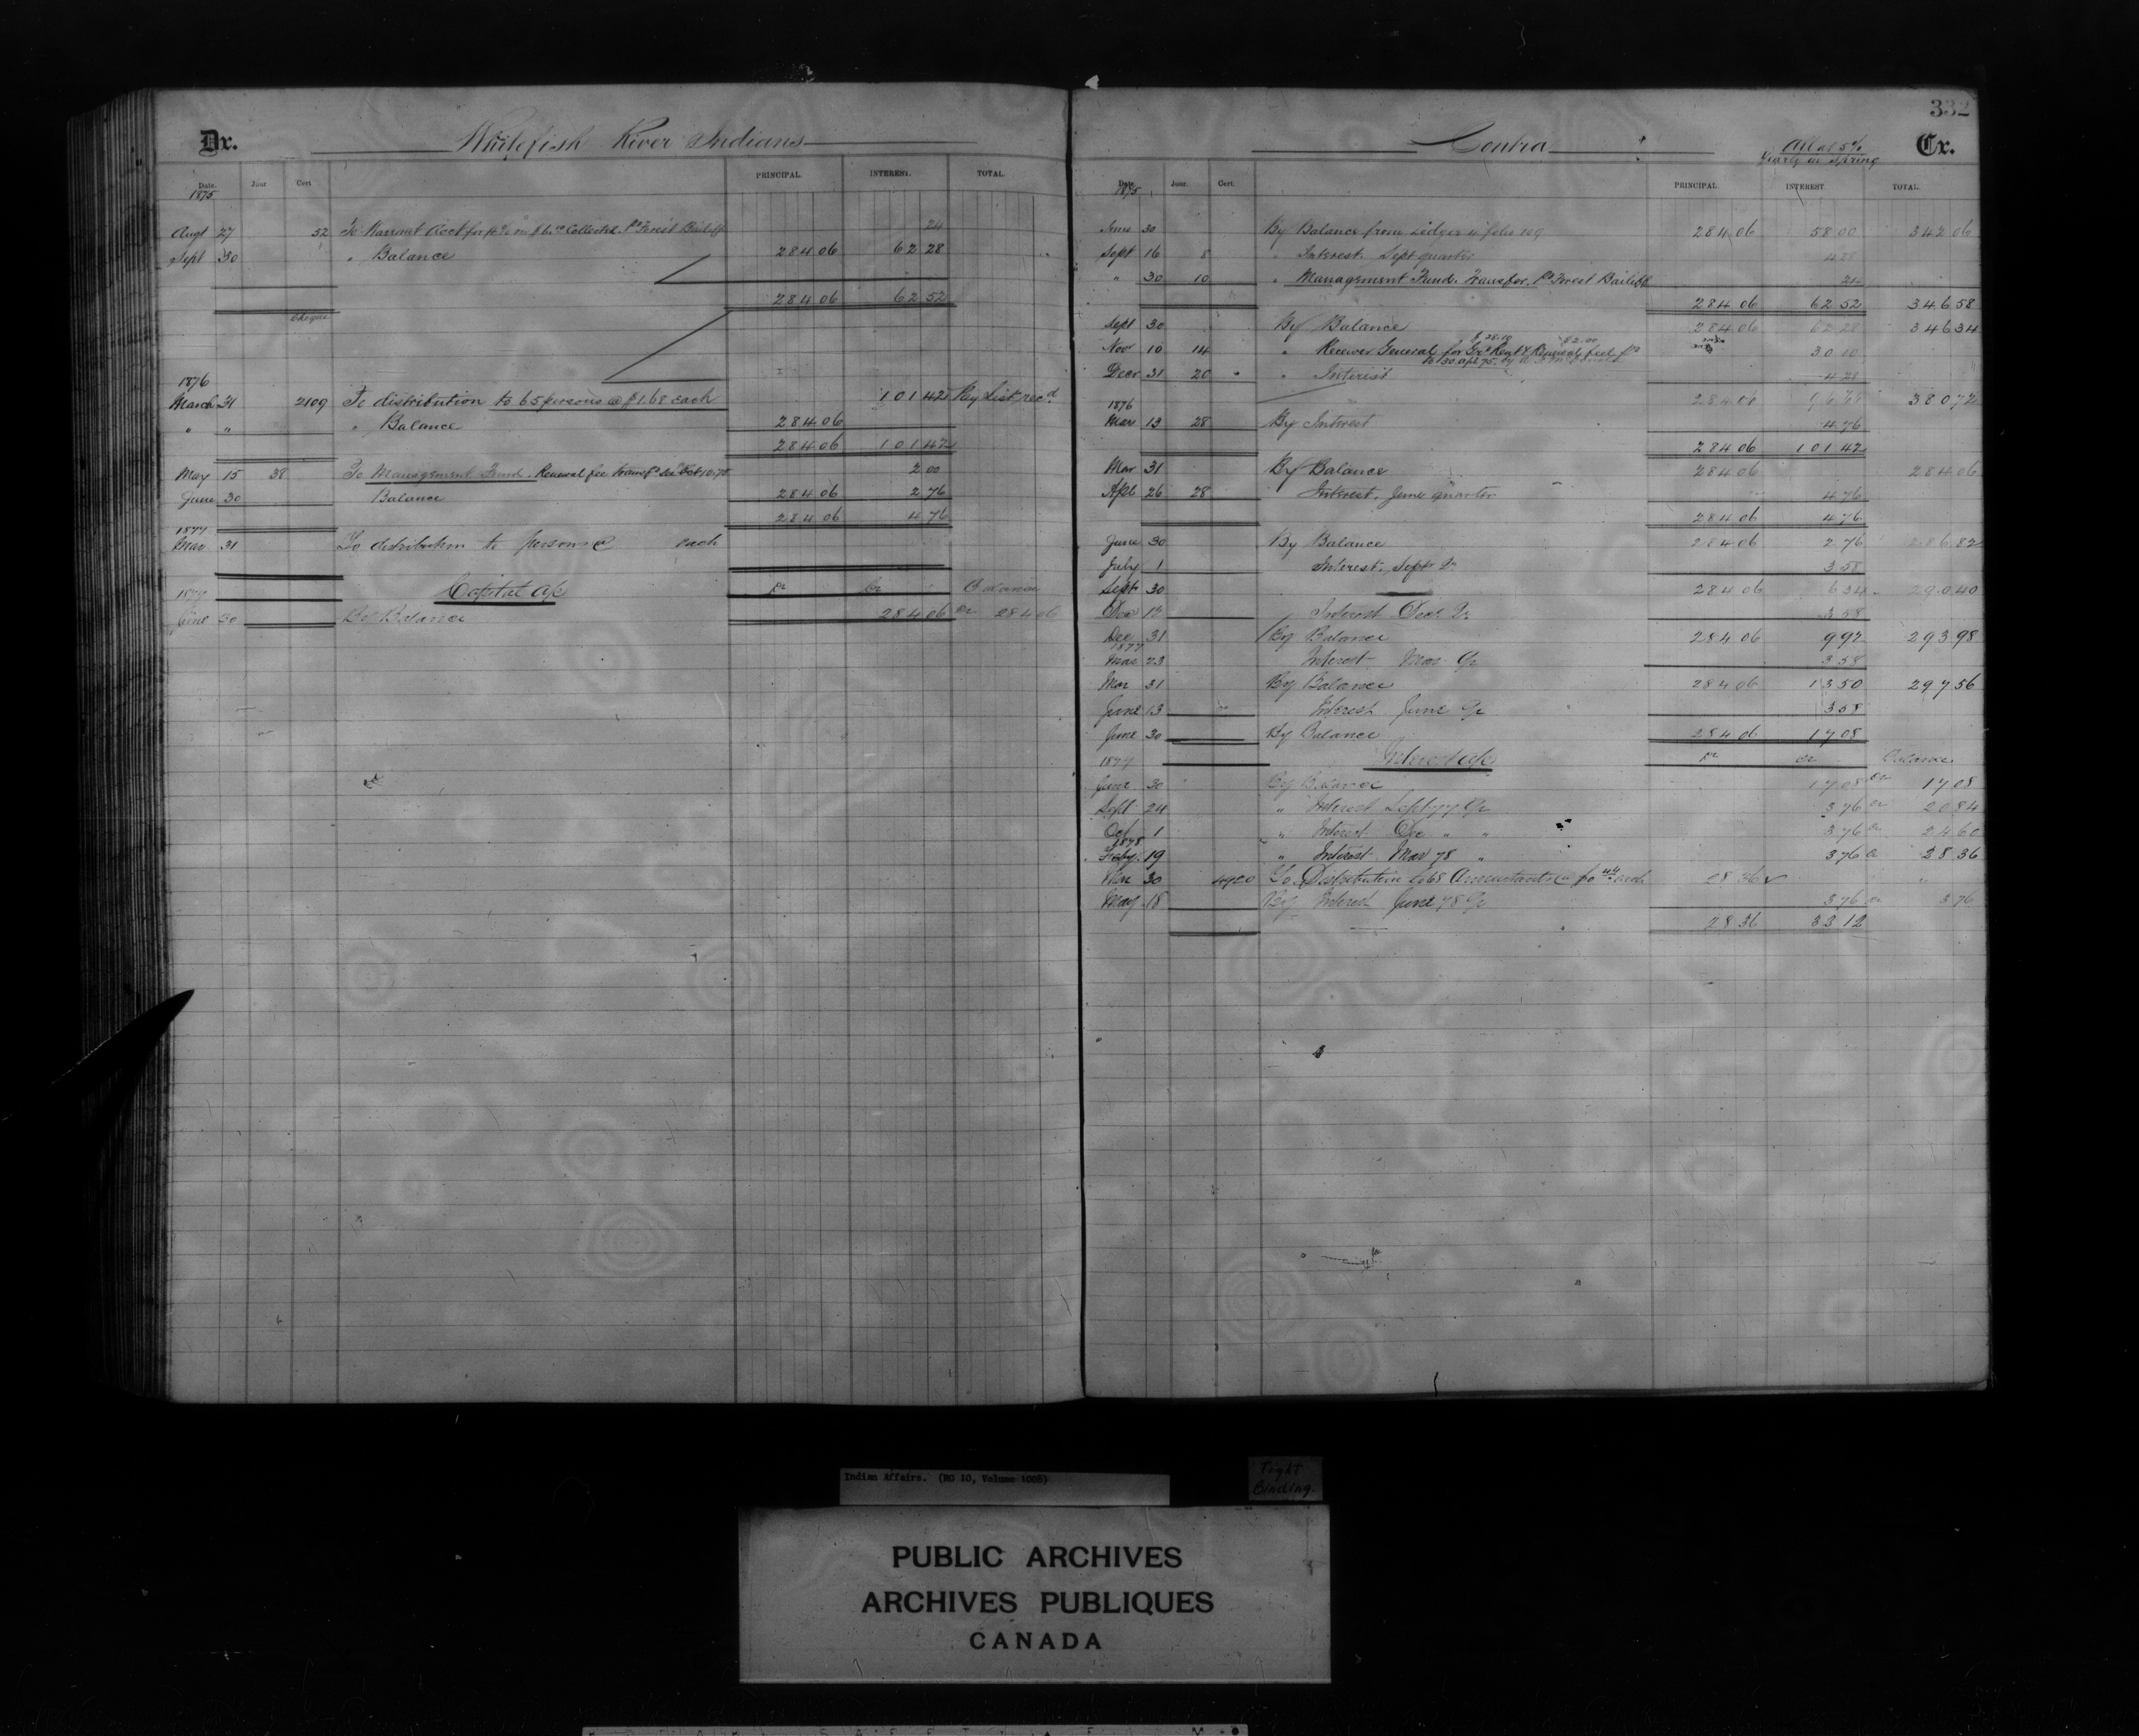 332
Dr. Whitefish River Indians
Date. Jour Cert PRINCIPAL. INTEREST. TOTAL.
1875
Augt 27 52 To Warrant Acct for Collected Forest Bailiff 24
Sept 30 " Balance 284 06 62 28
284 06 62 52
Cheque
1876
March 31 2109 To distribution to 65 persons @ $1.68 each 101 42 Pay List recd.
" " " Balance 284 06
284 06 101 42
May 15 38 To Management Fund. Renewal fee 2 00
June 30 Balance 284 06 2 76
284 06 4 76
1877
Mar 31 To distribution to persons @ each
1877 Capital a/c Dr Cr Balance
June 30 By Balance 284 06 Cr 284 06
Contra All at 5% Cr.
Yearly in Spring
Date. Jour. Cert. PRINCIPAL. INTEREST. TOTAL.
1875
June 30 By Balance from Ledger folio 284 06 58 00 342 06
Sept 16 8 " Interest. Sept quarter 4 28
" 30 10 " Management Fund. Transfer. Forest Bailiff 24
284 06 62 52 346 58
Sept 30 By Balance 284 06 62 28 346 34
$28.10 $2.00
Novr 10 14 " Receiver General for Rent & Renewal fee 30 10
to 30 Apl 75.
Decr 31 20 " Interest 4 28
284 06 96 66 380 72
1876
Mar 13 28 By Interest 4 76
284 06 101 42
Mar 31 By Balance 284 06 284 06
Apl 26 28 Interest. June quarter 4 76
284 06 4 76
June 30 By Balance 284 06 2 76 286 82
July 1 Interest. Sept Qr 3 58
Sept 30 284 06 6 34 290 40
Dec 12 Interest Dec. Qr 3 58
Dec 31 By Balance 284 06 9 92 293 98
1877
Mar 23 Interest Mar Qr 3 58
Mar 31 By Balance 284 06 13 50 297 56
June 13 Interest June Qr 3 58
June 30 By Balance 284 06 17 08
1877 Interest a/c Dr Cr Balance
June 30 By Balance 17 08 Cr 17 08
Sept 24 " Interest Sept 77 Qr 3 76 Cr 20 84
Oct 1 " Interest Dec " " 3 76 Cr 24 60
1878
Feby. 19 " Interest Mar 78 " 3 76 Cr 28 36
Mar 30 4920 To Distribution to 68 Annuitants each 28 36
May 18 By Interest June 78 Qr 3 76 Cr 3 76
28 36 33 12
Indian Affairs. (RG 10, Volume 1005)
Tight
Binding.
PUBLIC ARCHIVES
ARCHIVES PUBLIQUES
CANADA